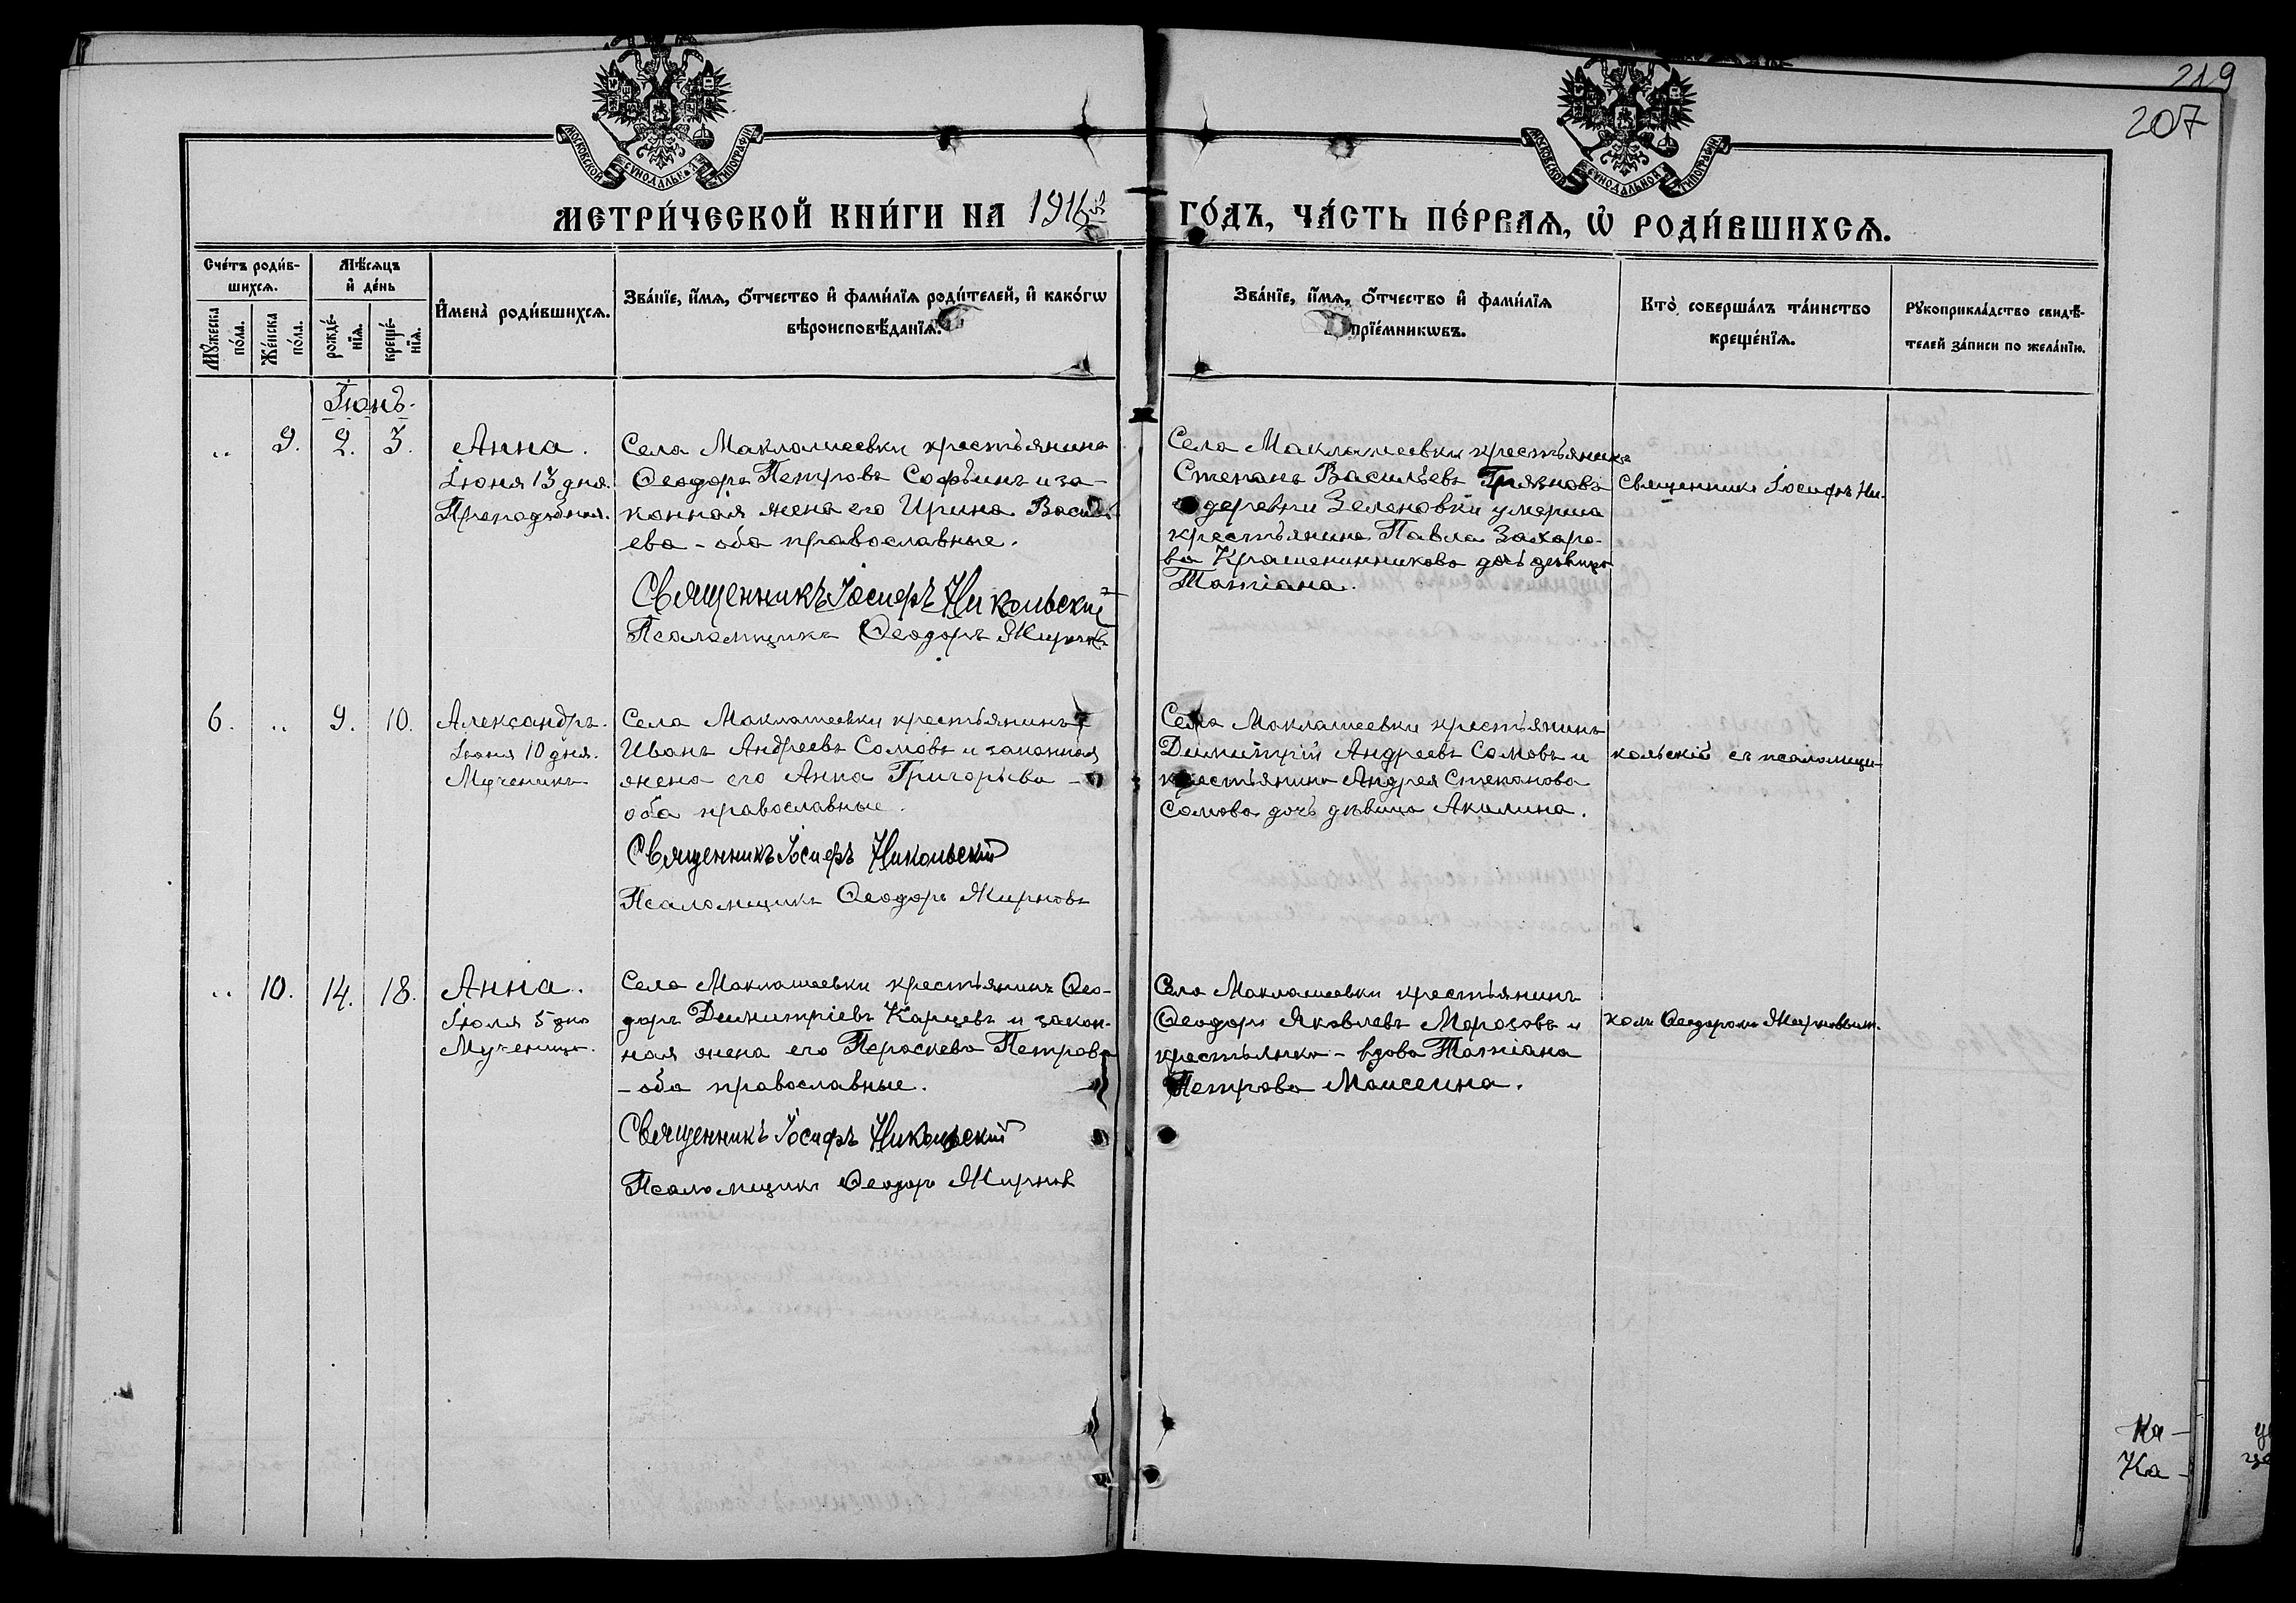 219
207
МОСКОВСКОЙ СѴНОДАЛЬНОЙ ТИПОГРАФІИ
МОСКОВСКОЙ СѴНОДАЛЬНОЙ ТИПОГРАФІИ
МЕТРИ́ЧЕСКОЙ КНИ́ГИ НА 1916й ГО́ДЪ, ЧА́СТЬ ПЕ́РВАѦ, Ѡ҆ РОДИ́ВШИХСѦ.
Сче́тъ роди́в-
шихсѧ.
Мꙋ́жеска по́ла.
Же́нска по́ла.
Мѣ́сѧцъ
и҆ де́нь
рожде́-
нїѧ.
креще́-
нїѧ.
И҆мена̀ роди́вшихсѧ.
Зва́нїе, и҆́мѧ, ѻ҆́тчество и҆ фами́лїѧ роди́телей, и҆ како́гѡ
вѣроисповѣ́данїѧ.
Зва́нїе, и҆́мѧ, ѻ҆́тчество и҆ фами́лїѧ
прїе́мникѡвъ.
Кто̀ соверша́лъ та́инство
креще́нїѧ.
Рꙋкоприкла́дство свидѣ́-
телей за́писи по жела́нїю.
Іюнь.
" 9. 2. 3.
Анна.
Іюня 13 дня.
Преподобная.
Села Маклашеевки крестьянинъ
Ѳеодоръ Петровъ Софьинъ и за-
конная жена его Ирина Василь
ева - оба православные.
Священникъ Іосифъ Никольскій
Псаломщикъ Ѳеодоръ Жирновъ
Села Маклашеевки крестьянинъ
Степанъ Васильевъ Грязновъ
и деревни Зеленовки умерша
крестьянина Павла Захаро-
ва Крашенинникова дочь девица
Татіана.
Священникъ Іосифъ Ни-
6. " 9. 10.
Александръ.
Іюня 10 дня.
Мученикъ
Села Маклашеевки крестьянинъ
Иванъ Андреевъ Сомовъ и законная
жена его Анна Григорьева -
оба православные.
Священникъ Іосифъ Никольскій
Псаломщикъ Ѳеодоръ Жирновъ
Села Маклашеевки крестьянинъ
Димитрій Андреевъ Сомовъ и
крестьянина Андрея Степанова
Сомова дочь дѣвица Акилина.
кольскій съ псаломщи-
" 10. 14. 18.
Анна.
Іюля 5 дня
Мученица.
Села Маклашеевки крестьянинъ Ѳео-
доръ Димитріевъ Карцевъ и закон-
ная жена его Параскева Петрова
- оба православные.
Священникъ Іосифъ Никольскій
Псаломщикъ Ѳеодоръ Жирновъ
Села Маклашеевки крестьянинъ
Ѳеодоръ Яковлевъ Морозовъ и
крестьянка - вдова Татіана
Петрова Моисеина.
комъ Ѳеодоромъ Жирновымъ.
Ка -
Ка -